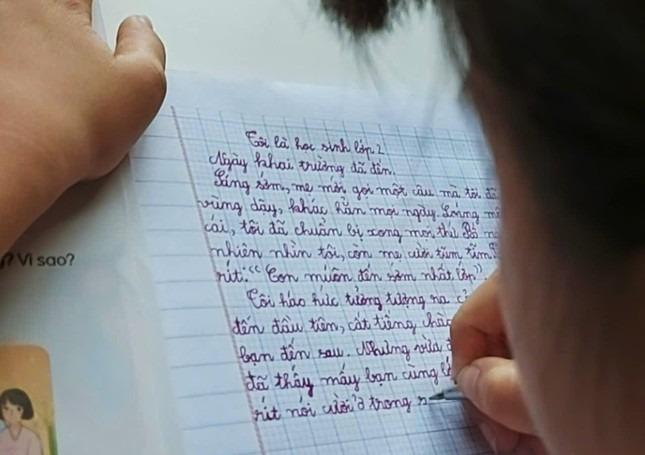 Tôi là học sinh lớp 2
Ngày khai trường đã đến.
Sáng sớm, mẹ mới gọi một câu mà tôi đã
vùng dậy, khác hẳn mọi ngày. Loáng m
cái, tôi đã chuẩn bị xong mọi thứ. Bố n
nhiên nhìn tôi, còn mẹ cười tủm tỉm.
rít: "Con muốn đến sớm nhất lớp"
Tôi háo hức tưởng tượng ra c
đến đầu tiên, cất tiếng chào
bạn đến sau. Nhưng vừa
đã thấy mấy bạn cùng l
rít nói cười ở trong
? Vì sao?